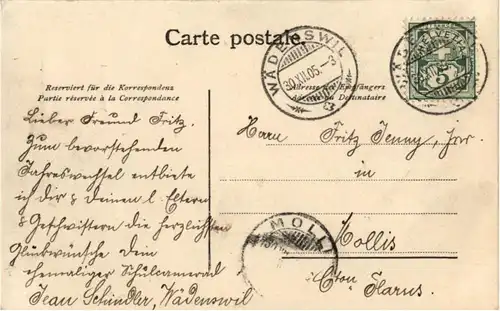 Carte postale.
WÄDENSWIL
30.XII.05.-3
HELVETIA
5
Reserviert für die Korrespondenz
Partie réservée à la Correspondance
Adresse des Empfängers
Adresse du Destinataire
Lieber Freund Fritz.
Zum bevorstehenden
Jahreswechsel entbiete
ich Dir & deinen l. Eltern
& Geschwistern die herzlichsten
Glückwünsche Dein
ehemaliger Schulcamerad
Jean Schindler, Wädenswil
Herrn Fritz Jenny, Jr.
in
Mollis
Cton Glarus.
MOLLI